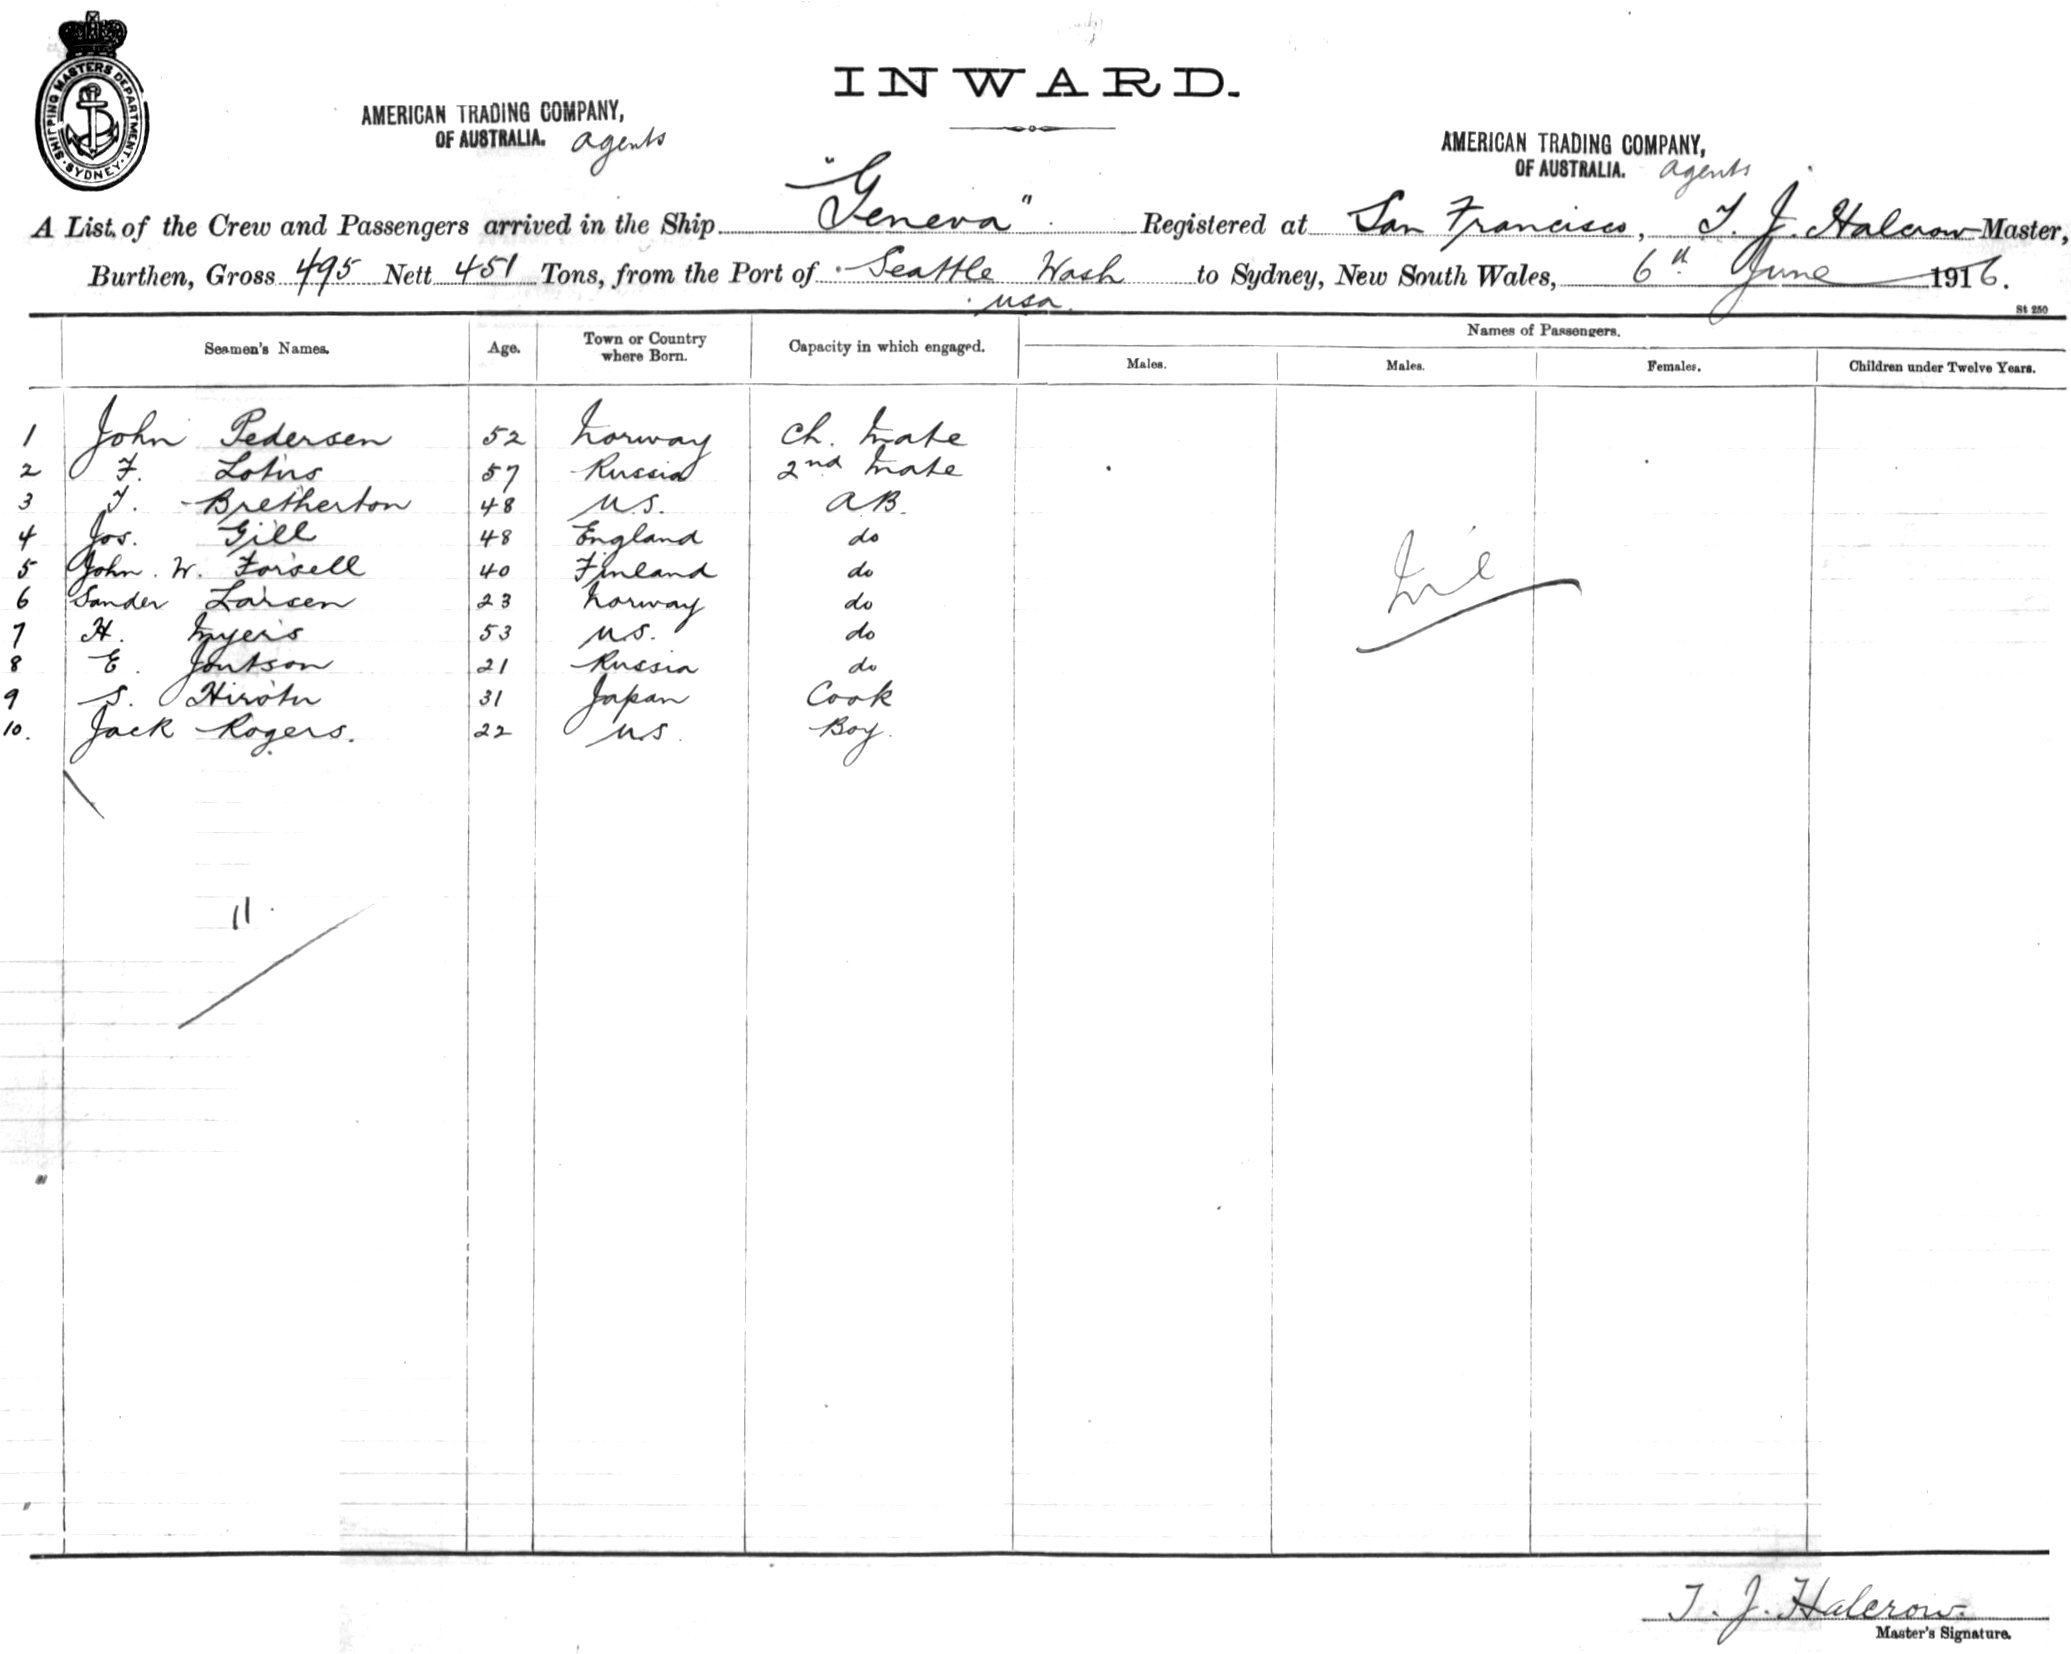 SHIPPING MASTERS DEPARTMENT
SYDNEY
INWARD.
AMERICAN TRADING COMPANY,
OF AUSTRALIA. agents
AMERICAN TRADING COMPANY,
OF AUSTRALIA. agents
A List of the Crew and Passengers arrived in the Ship "Geneva" Registered at San Francisco, T. J. Halcrow Master,
Burthen, Gross 495 Nett 451 Tons, from the Port of Seattle Wash to Sydney, New South Wales, 6th June 1916.
USA
St 250
Seamen's Names. Age. Town or Country where Born. Capacity in which engaged. Names of Passengers.
Males. Males. Females. Children under Twelve Years.
1 John Pedersen 52 Norway Ch. Mate
2 F. 57 Russia 2nd Mate
3 T. Bretherton 48 U.S. AB.
4 Jos. Gill 48 England do
5 John. W. Forsell 40 Finland do
6 Sander Larsen 23 Norway do
7 H. Myers 53 U.S. do
8 E. 21 Russia do
9 S. 31 Japan Cook
10. Jack Rogers. 22 U.S. Boy.
Nil
11.
T. J. Halcrow.
Master's Signature.